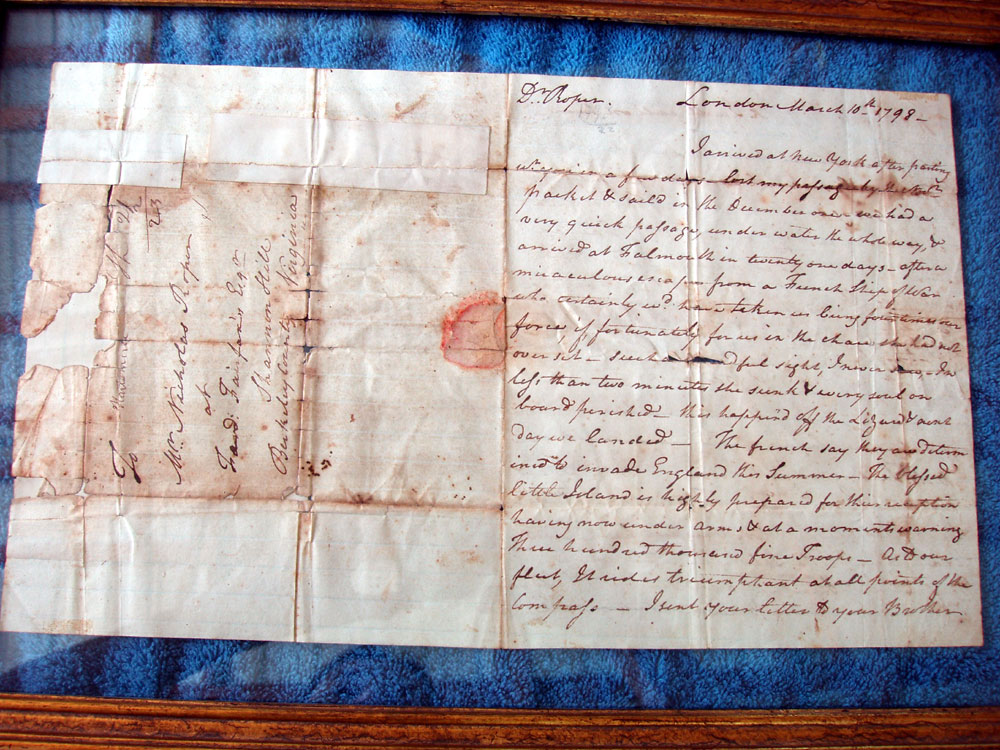 Dr Roper. London March 10th 1798 -
I arrived at New York after parting
wth you in a few days - Lost my passage by the Novbr
packet & saild in the December one - we had a
very quick passage, under water the whole way, &
arrived at Falmouth in twenty one days - after a
miraculous escape from a French Ship of War
who certainly wd. have taken us being four times our
force if fortunately for us in the chace she had not
over set - such a dful sight, I never saw - In
less than two minutes she sunk & every soul on
board perished - this happen'd off the Lizard &
day we landed - The french say they are determ
ined to invade England this Summer - The blessed
little Island is highly prepared for this reception
having now under arms & at a moments warning
Three hundred thousand fine Troops - As to our
fleet, It rides triumphant at all points of the
Compass - I sent your letter to your Brother
To
Mr. Nicholas Roper
at
Fairfax's Esqr
Shannon Hill
Berkeley County
Virginia